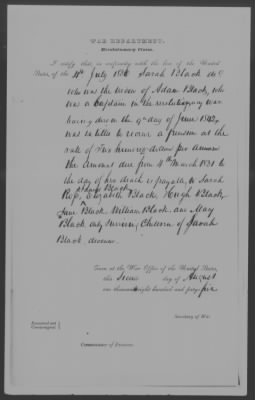 WAR DEPARTMENT.
Revolutionary Claim.
I certify that, in conformity with the law of the United
States, of the 4th July 1836 Sarah Black decd
who was the widow of Adam Black, who
was a Captain in the revolutionary war
having died on the 9th day of June 1842,
was entitled to receive a pension at the
rate of Two hundred dollars per annum
the amount due from 4th March 1831 to
the day of her death is payable to Sarah
Black
Elizabeth Black, Hugh Black,
Jane Black William Black and Mary
Black only surviving Children of Sarah
Black deceased
Given at the War Office of the United States,
this day of August
one thousand eight hundred and forty five
Secretary of War.
Examined and
Countersigned
Commissioner of Pensions.